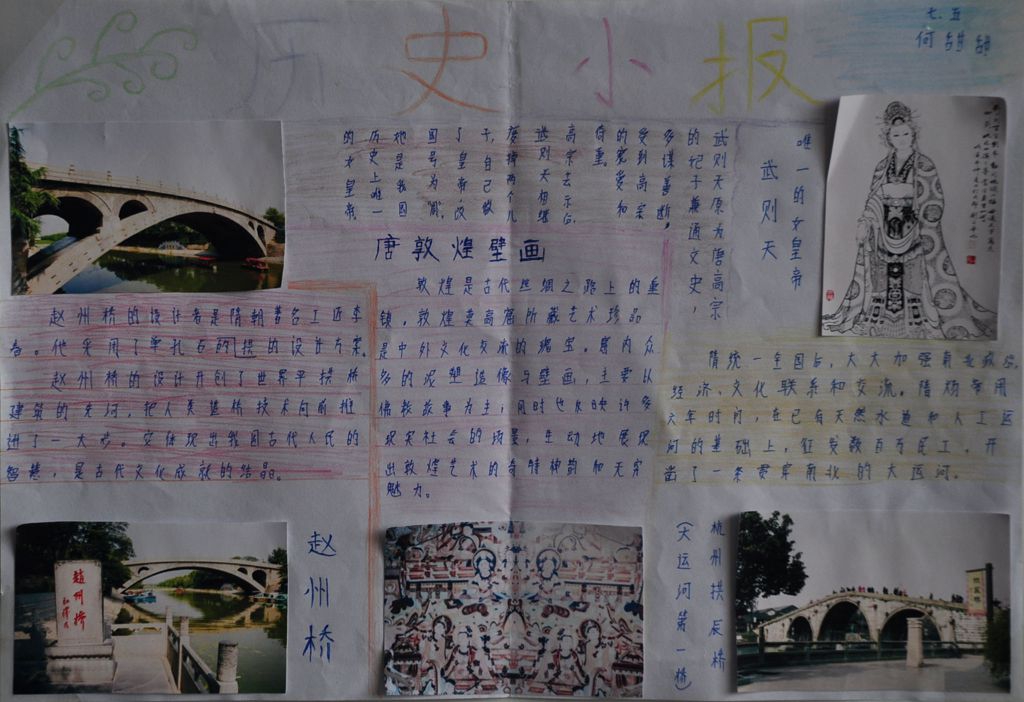 历史小报
七.五
何甜甜
唯一的女皇帝
武则天
武则天原为唐高宗
的妃子兼通文史，
多谋善断，
受到高宗
的宠爱和
倚重。
高宗去示后，
武则天相继
废掉两个儿
子，自己做
了皇帝，改
国号为"周"。
她是我国
历史上唯一
的女皇帝
唐敦煌壁画
敦煌是古代丝绸之路上的重
镇，敦煌莫高窟所藏艺术珍品
是中外文化交流的瑰宝。窟内众
多的泥塑造像与壁画，主要以
佛教故事为主；同时也反映许多
现实社会的场景，生动地展现
出敦煌艺术的奇特神韵和无穷
魅力。
赵州桥的设计者是隋朝著名工匠李
春。他采用了单孔石的拱的设计方案。
赵州桥的设计开创了世界平拱桥
建筑的先河，把人类造桥技术向前推
进了一大步。它体现出我国古代人民的
智慧，是古代文化成就的结晶。
隋统一全国后，大大加强南北政治、
经济、文化联系和交流。隋炀帝用
六年时间，在已有天然水道和人工运
河的基础上，征发数百万民工，开
凿了一条贯穿南北的大运河。
赵州桥
赵州桥
杭州拱辰桥
（大运河第一桥）